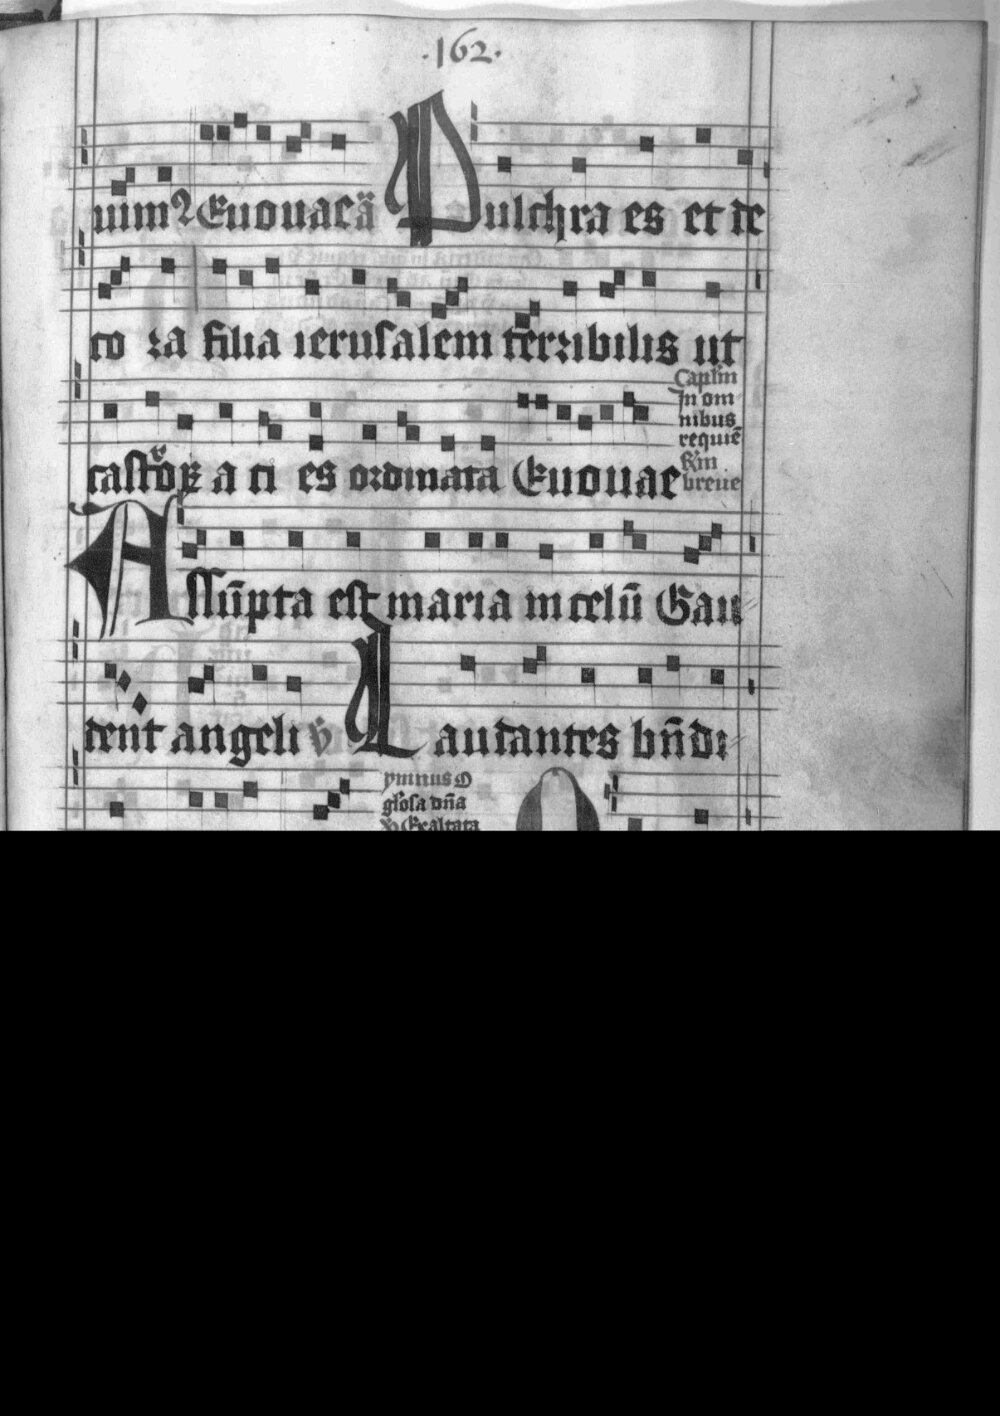 ·162·
uim Euouaeā Pulchra es et de
co ra filia ierusalem terribilis ut
castror a ci es ordinata Euouae
Caplm
In om
nibus
requiē
Rm
breue
Assūpta est maria in celū Gau
dent angeli v Laudantes bn̄di
ymnus O
glosa dn̄a
Exaltata